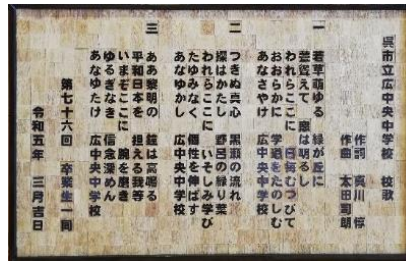 呉市立広中央中学校 校歌
作詞 真川 惇
作曲 太田司朗
一
若草萌ゆる 緑が丘に
甍聳えて 窓は明るし
われらここに 日毎むつびて
おおらかに 学道をたのしむ
あなさやけ 広中央中学校
二
つきぬ真心 黒瀬の流れ
操はかたし 野呂の緑り葉
われらここに いそしみ学び
たゆみなく 個性を伸ばす
あなゆかし 広中央中学校
三
ああ黎明の 鐘は高鳴る
平和日本を 担える我等
いまぞここに 腕を磨き
ゆるぎなき 信念深めん
あなゆたけ 広中央中学校
第七十六回 卒業生一同
令和五年 三月吉日